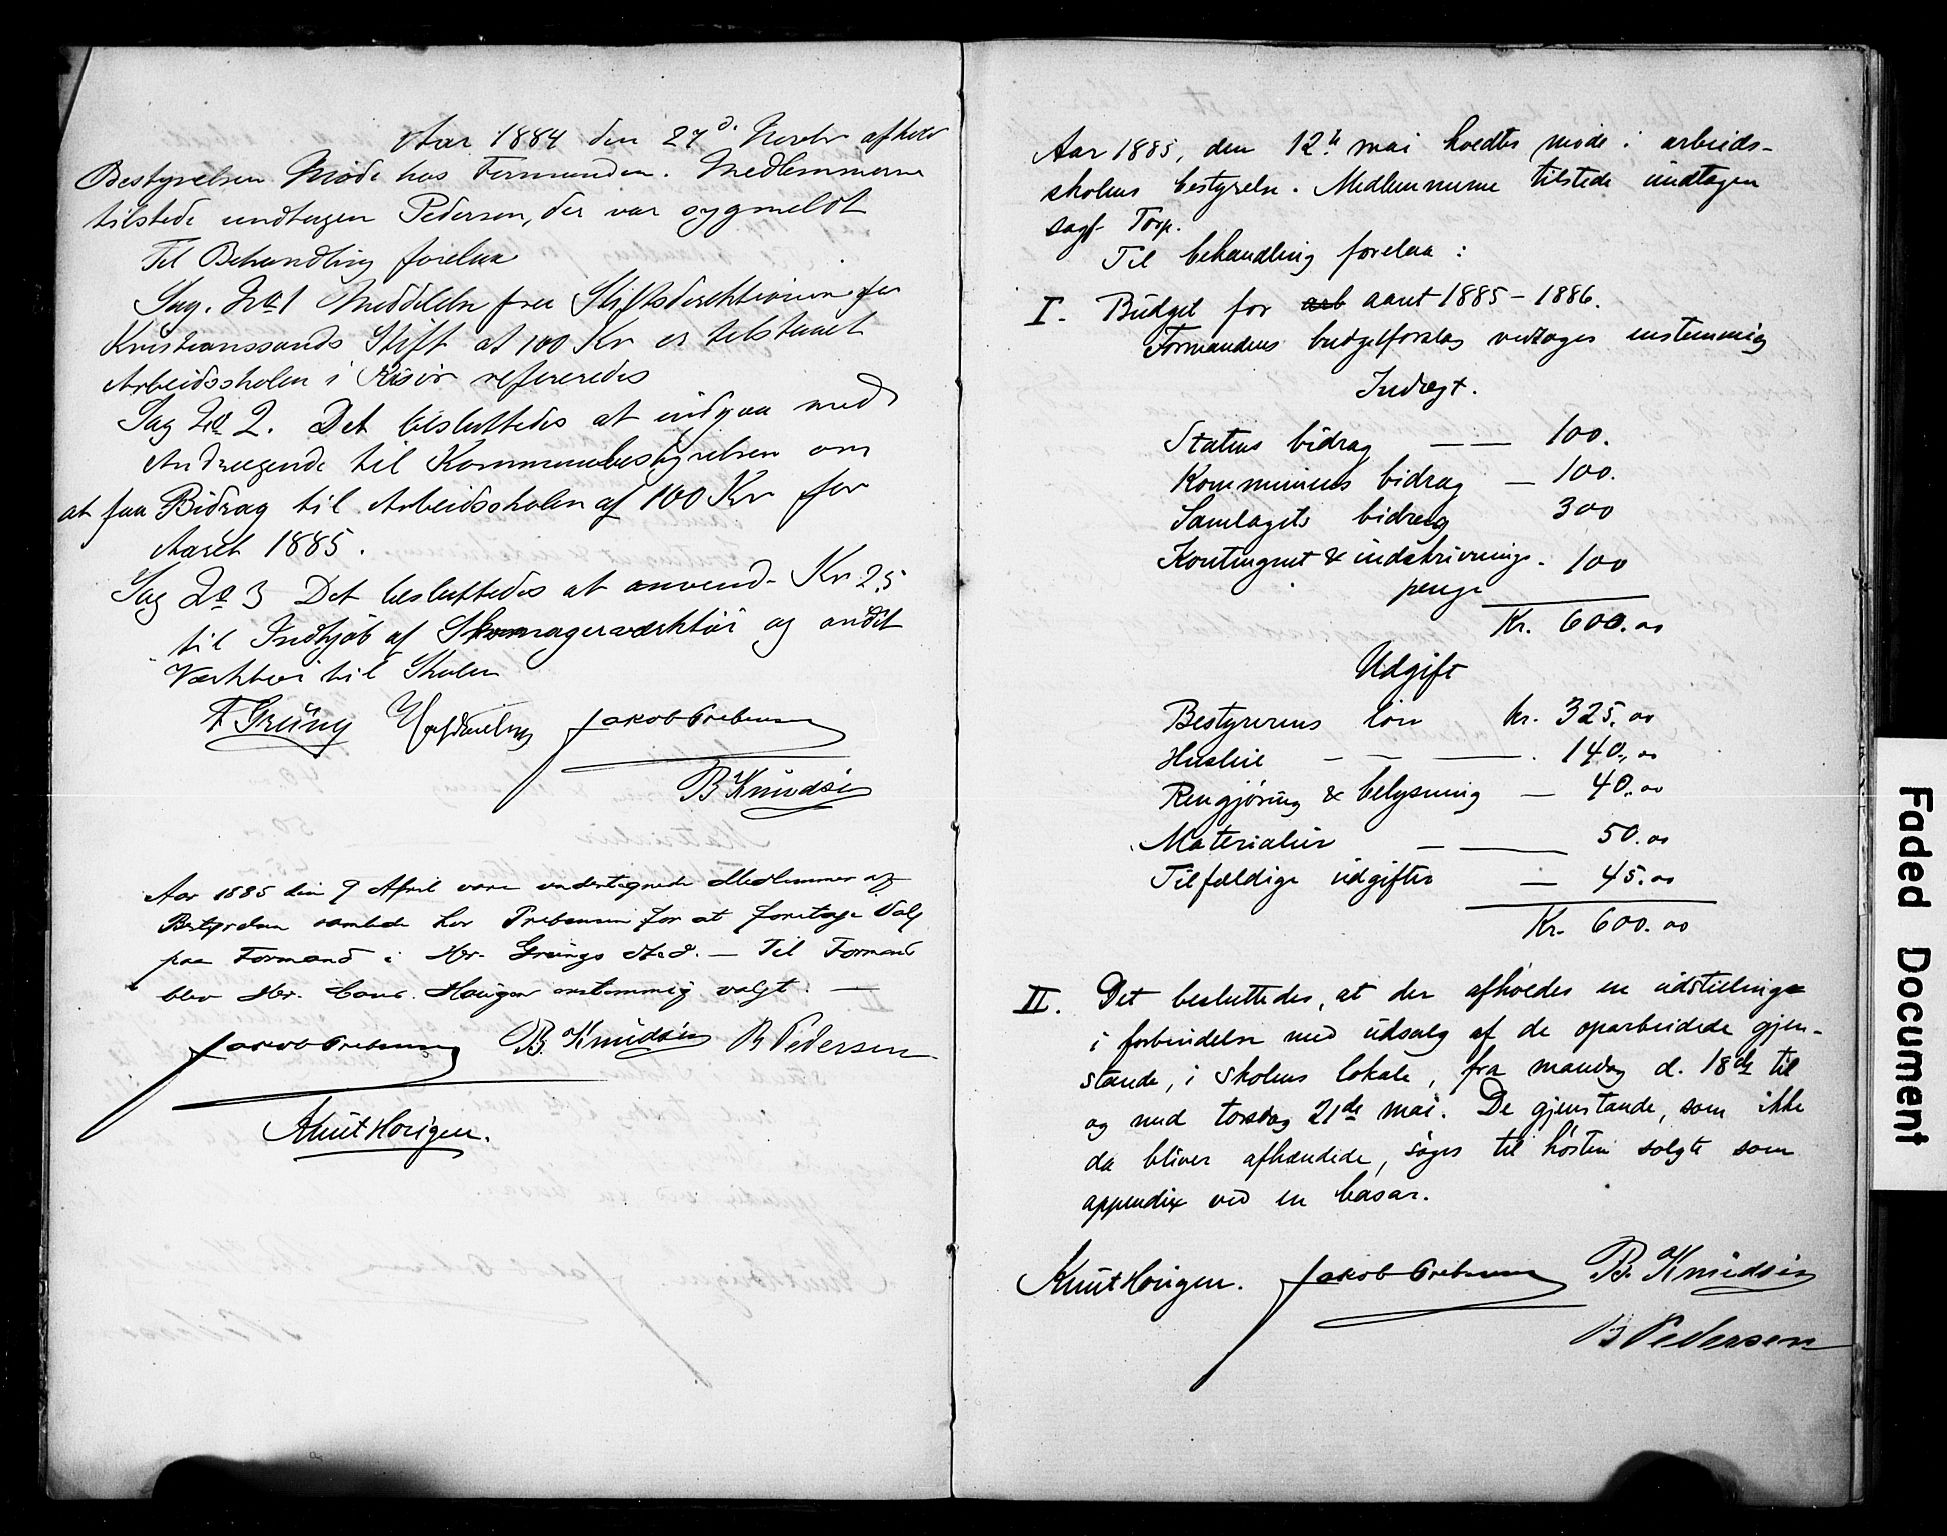 Aar 1884 den 27d. Novbr afholdt
Bestyrelsen Møde hos Formanden. Medlemmerne
tilstede undtagen Pedersen, der var sygmeldt
Til Behandling forelaa
Sag. No 1 Meddelelse fra Stiftsdirektionen for
Kristianssands Stift at 100 Kr er tilstaaet
Arbeidsskolen i Risør refereredes
Sag No 2. Det besluttedes at indgaa med
Andragende til Kommunebestyrelsen om
at faa Bidrag til Arbeidsskolen af 100 Kr for
Aaret 1885.
Sag No 3 Det besluttedes at anvend- Kr 25
til Indkjøb af Skomagerværktøi og andet
Værktøi til Skolen
F Grüny Jakob Prebensen
B Knudsen
Aar 1885 den 9 April vare undertegnede Medlemmer af
Bestyrelsen samlede hos Prebensen for at foretage Valg
paa Formand i Hr. Grünys Sted. — Til Formand
blev Hr. Cons. Hougen enstemmig valgt. —
Jakob Prebensen B. Knudsen B Pedersen
Knut Hougen.
Aar 1885, den 12te mai holdtes møde i arbeids-
skolens bestyrelse. Medlemmerne tilstede undtagen
sagf. Torp.
Til behandling forelaa:
I. Budget for arb aaret 1885–1886.
Formandens budgetforslag vedtoges enstemmig
Indtægt.
Statens bidrag — — 100.
Kommunens bidrag — 100.
Samlagets bidrag 300
Kontingent & indskrivnings- 100
penge
Kr. 600.00
Udgift
Bestyrerens løn kr. 325.00
Husleie — — — 140.00
Rengjøring & belysning — 40.00
Materialier — — 50.00
Tilfældige udgifter — 45.00
Kr. 600.00
II. Det besluttedes, at der afholdes en udstilling
i forbindelse med udsalg af de oparbeidede gjen-
stande, i skolens lokale, fra mandag d. 18de til
og med torsdag 21de mai. De gjenstande, som ikke
da bliver afhændede, søges til høsten solgte som
appendix ved en basar.
Knut Hougen. Jakob Prebensen B. Knudsen
B Pedersen
Faded Document